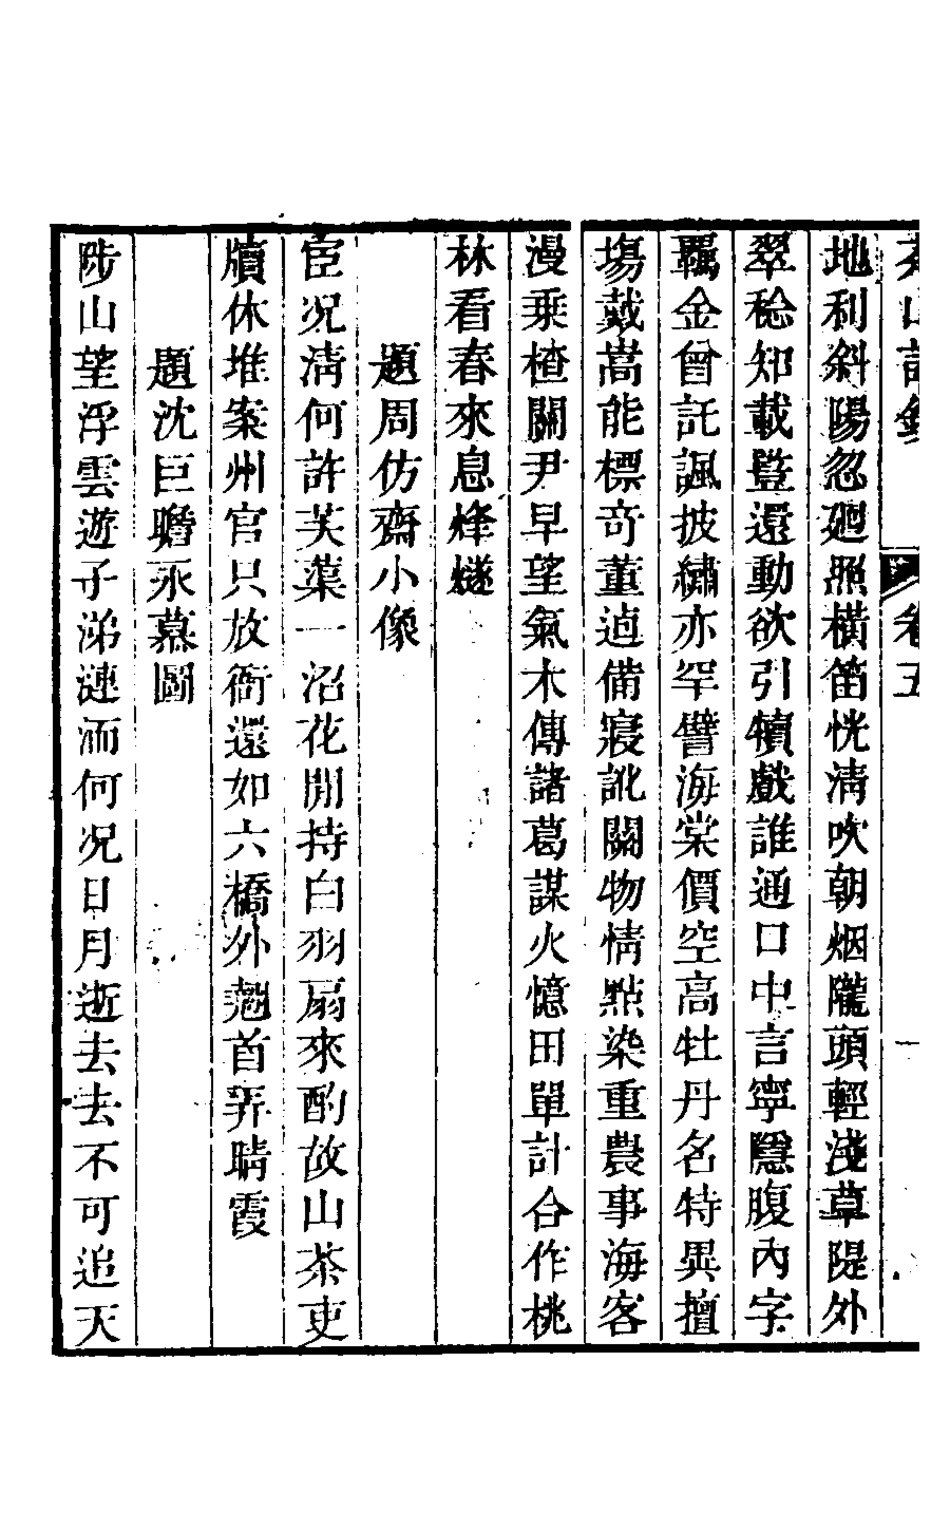 山詩鈔 卷五 一
地利斜陽忽迴照橫笛恍清吹朝烟隴頭輕淺草隄外
翠稔知載鹽還動欲引犢戲誰通口中言寧隱腹內字
羈金曾託諷披繡亦罕譬海棠價空高牡丹名特異擅
塲戴嵩能標奇董逌備寢訛關物情點染重農事海客
漫乘楂關尹早望氣木傳諸葛謀火憶田單計合作桃
林看春來息烽燧
題周仿齋小像
宦况清何許芙蕖一沼花開持白羽扇來酌故山茶吏
牘休堆案州官只放衙還如六橋外翹首弄晴霞
題沈巨瞻永慕圖
陟山望浮雲遊子涕漣洏何况日月逝去去不可追天